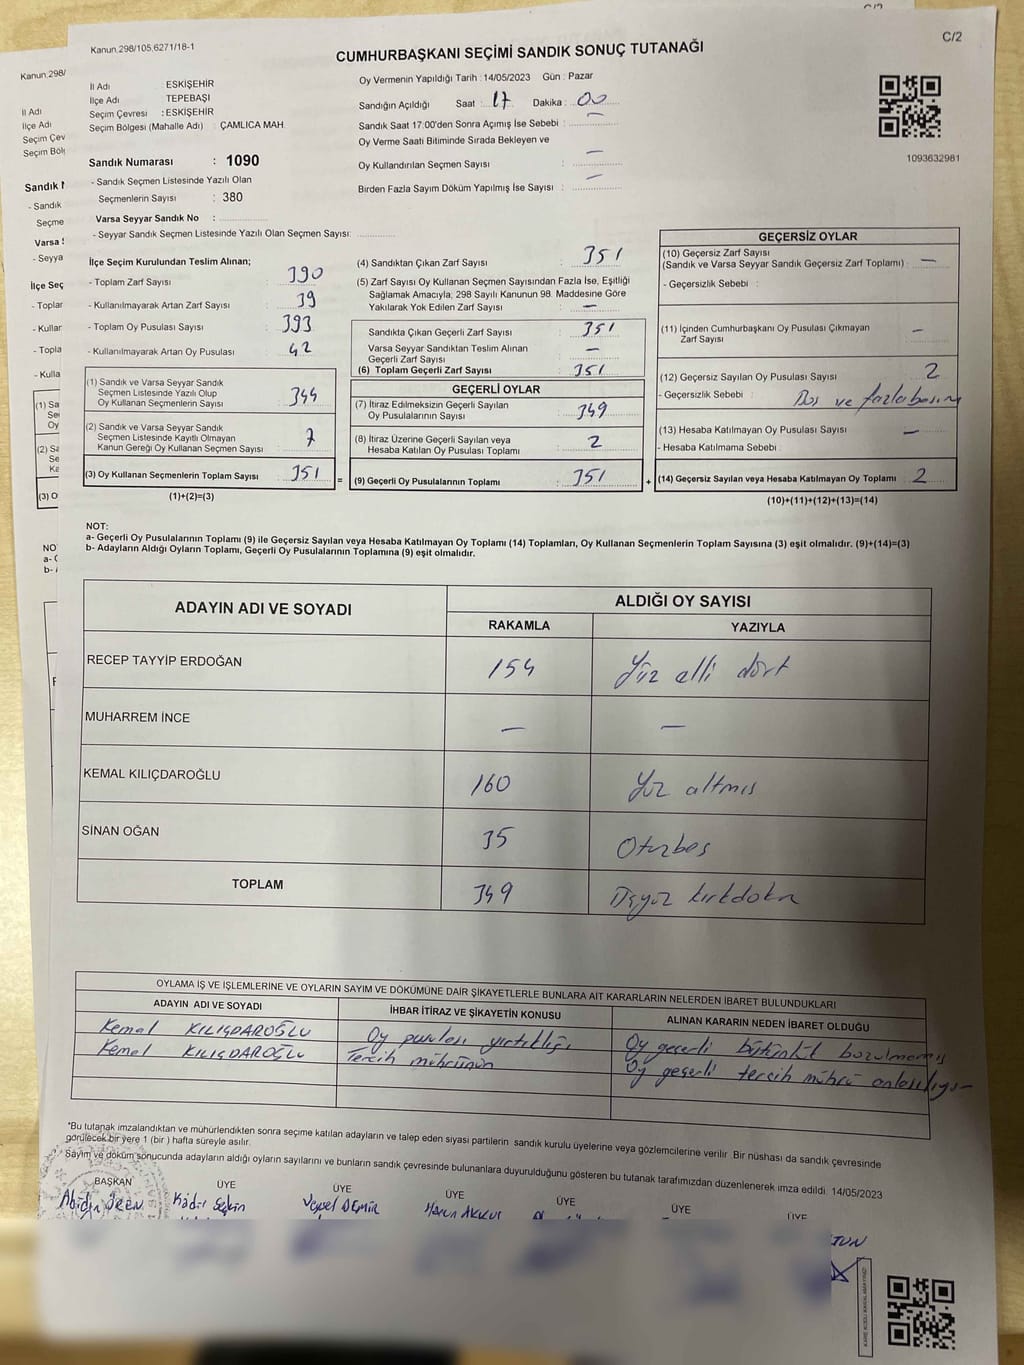 C/2
Kanun.298/105,6271/18-1
CUMHURBAŞKANI SEÇİMİ SANDIK SONUÇ TUTANAĞI
İl Adı : ESKİŞEHİR
İlçe Adı : TEPEBAŞI
Seçim Çevresi : ESKİŞEHİR
Seçim Bölgesi (Mahalle Adı) : ÇAMLICA MAH.
Sandık Numarası : 1090
- Sandık Seçmen Listesinde Yazılı Olan
Seçmenlerin Sayısı : 380
Varsa Seyyar Sandık No :
- Seyyar Sandık Seçmen Listesinde Yazılı Olan Seçmen Sayısı:
Oy Vermenin Yapıldığı Tarih : 14/05/2023 Gün : Pazar
Sandığın Açıldığı Saat : 17 Dakika : 00
Sandık Saat 17:00'den Sonra Açımış İse Sebebi : —
Oy Verme Saati Bitiminde Sırada Bekleyen ve
Oy Kullandırılan Seçmen Sayısı : —
Birden Fazla Sayım Döküm Yapılmış İse Sayısı : —
1093632981
İlçe Seçim Kurulundan Teslim Alınan;
- Toplam Zarf Sayısı : 390
- Kullanılmayarak Artan Zarf Sayısı : 39
- Toplam Oy Pusulası Sayısı : 393
- Kullanılmayarak Artan Oy Pusulası : 42
(1) Sandık ve Varsa Seyyar Sandık
Seçmen Listesinde Yazılı Olup
Oy Kullanan Seçmenlerin Sayısı : 344
(2) Sandık ve Varsa Seyyar Sandık
Seçmen Listesinde Kayıtlı Olmayan
Kanun Gereği Oy Kullanan Seçmen Sayısı : 7
(3) Oy Kullanan Seçmenlerin Toplam Sayısı : 351
(1)+(2)=(3)
(4) Sandıktan Çıkan Zarf Sayısı : 351
(5) Zarf Sayısı Oy Kullanan Seçmen Sayısından Fazla İse, Eşitliği
Sağlamak Amacıyla, 298 Sayılı Kanunun 98. Maddesine Göre
Yakılarak Yok Edilen Zarf Sayısı : —
Sandıkta Çıkan Geçerli Zarf Sayısı : 351
Varsa Seyyar Sandıktan Teslim Alınan
Geçerli Zarf Sayısı : —
(6) Toplam Geçerli Zarf Sayısı : 351
GEÇERLİ OYLAR
(7) İtiraz Edilmeksizin Geçerli Sayılan
Oy Pusulalarının Sayısı : 349
(8) İtiraz Üzerine Geçerli Sayılan veya
Hesaba Katılan Oy Pusulası Toplamı : 2
= (9) Geçerli Oy Pusulalarının Toplamı : 351
GEÇERSİZ OYLAR
(10) Geçersiz Zarf Sayısı
(Sandık ve Varsa Seyyar Sandık Geçersiz Zarf Toplamı) : —
- Geçersizlik Sebebi :
(11) İçinden Cumhurbaşkanı Oy Pusulası Çıkmayan
Zarf Sayısı : —
(12) Geçersiz Sayılan Oy Pusulası Sayısı : 2
- Geçersizlik Sebebi : Boş ve fazla basım
(13) Hesaba Katılmayan Oy Pusulası Sayısı : —
- Hesaba Katılmama Sebebi :
+ (14) Geçersiz Sayılan veya Hesaba Katılmayan Oy Toplamı : 2
(10)+(11)+(12)+(13)=(14)
NOT:
a- Geçerli Oy Pusulalarının Toplamı (9) ile Geçersiz Sayılan veya Hesaba Katılmayan Oy Toplamı (14) Toplamları, Oy Kullanan Seçmenlerin Toplam Sayısına (3) eşit olmalıdır. (9)+(14)=(3)
b- Adayların Aldığı Oyların Toplamı, Geçerli Oy Pusulalarının Toplamına (9) eşit olmalıdır.
ADAYIN ADI VE SOYADI ALDIĞI OY SAYISI
RAKAMLA YAZIYLA
RECEP TAYYİP ERDOĞAN 154 Yüz elli dört
MUHARREM İNCE — —
KEMAL KILIÇDAROĞLU 160 Yüz altmış
SİNAN OĞAN 35 Otuzbeş
TOPLAM 349 Üçyüz kırkdokuz
OYLAMA İŞ VE İŞLEMLERİNE VE OYLARIN SAYIM VE DÖKÜMÜNE DAİR ŞİKAYETLERLE BUNLARA AİT KARARLARIN NELERDEN İBARET BULUNDUKLARI
ADAYIN ADI VE SOYADI İHBAR İTİRAZ VE ŞİKAYETİN KONUSU ALINAN KARARIN NEDEN İBARET OLDUĞU
Kemal KILIÇDAROĞLU Oy pusulası yırtıklığı Oy geçerli bütünlük bozulmamış
Kemal KILIÇDAROĞLU Tercih mührünün Oy geçerli tercih mührü anlaşılıyor
*Bu tutanak imzalandıktan ve mühürlendikten sonra seçime katılan adayların ve talep eden siyasi partilerin sandık kurulu üyelerine veya gözlemcilerine verilir. Bir nüshası da sandık çevresinde
görülecek bir yere 1 (bir) hafta süreyle asılır.
Sayım ve döküm sonucunda adayların aldığı oyların sayılarını ve bunların sandık çevresinde bulunanlara duyurulduğunu gösteren bu tutanak tarafımızdan düzenlenerek imza edildi. 14/05/2023
BAŞKAN ÜYE ÜYE ÜYE ÜYE ÜYE ÜYE
Abidin ÖREN Kadir Seçkin Veysel DEMİR Harun AKKUŞ